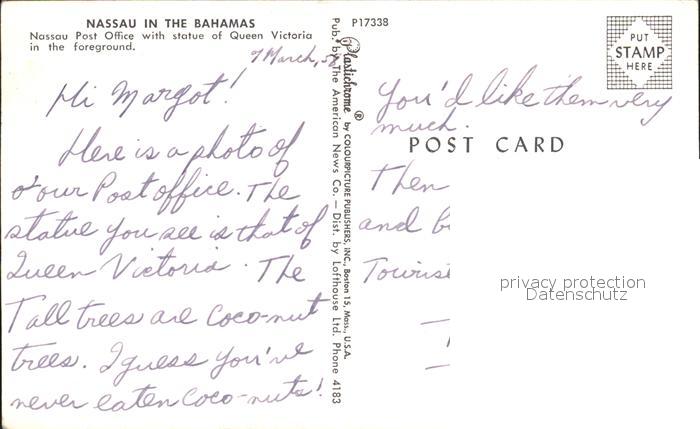 NASSAU IN THE BAHAMAS
Nassau Post Office with statue of Queen Victoria
in the foreground.
7 March,
Hi Margot!
Here is a photo of
our Post office. The
statue you see is that of
Queen Victoria. The
Tall trees are coco-nut
trees. I guess you've
never eaten coco-nuts!
Pub. by The American News Co. — Dist. by Lofthouse Ltd. Phone 4183
Plastichrome ® by COLOURPICTURE PUBLISHERS, INC., Boston 15, Mass., U.S.A.
P17338
PUT
STAMP
HERE
You'd like them very
much.
POST CARD
Then
and
privacy protection
Datenschutz